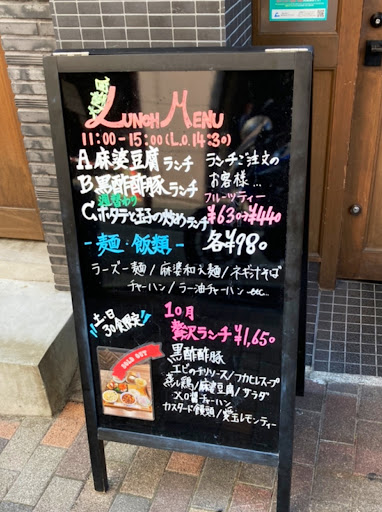 LUNCH MENU
11:00-15:00 (L.O.14:30)
A.麻婆豆腐ランチ
B.黒酢酢豚ランチ
週替わり
C.ホタテと玉子の炒めランチ
ランチご注文の
お客様...
フルーツティー
¥630→¥440
各¥980
-麺・飯類-
ラーズー麺/麻婆和え麺/ネギ汁そば
チャーハン/ラー油チャーハン etc...
土・日
30食限定
10月
贅沢ランチ¥1,650
黒酢酢豚
エビのチリソース/フカヒレスープ
蒸し鶏/麻婆豆腐/サラダ
XO醤チャーハン
カスタード饅頭/愛玉レモンティー
SOLD OUT